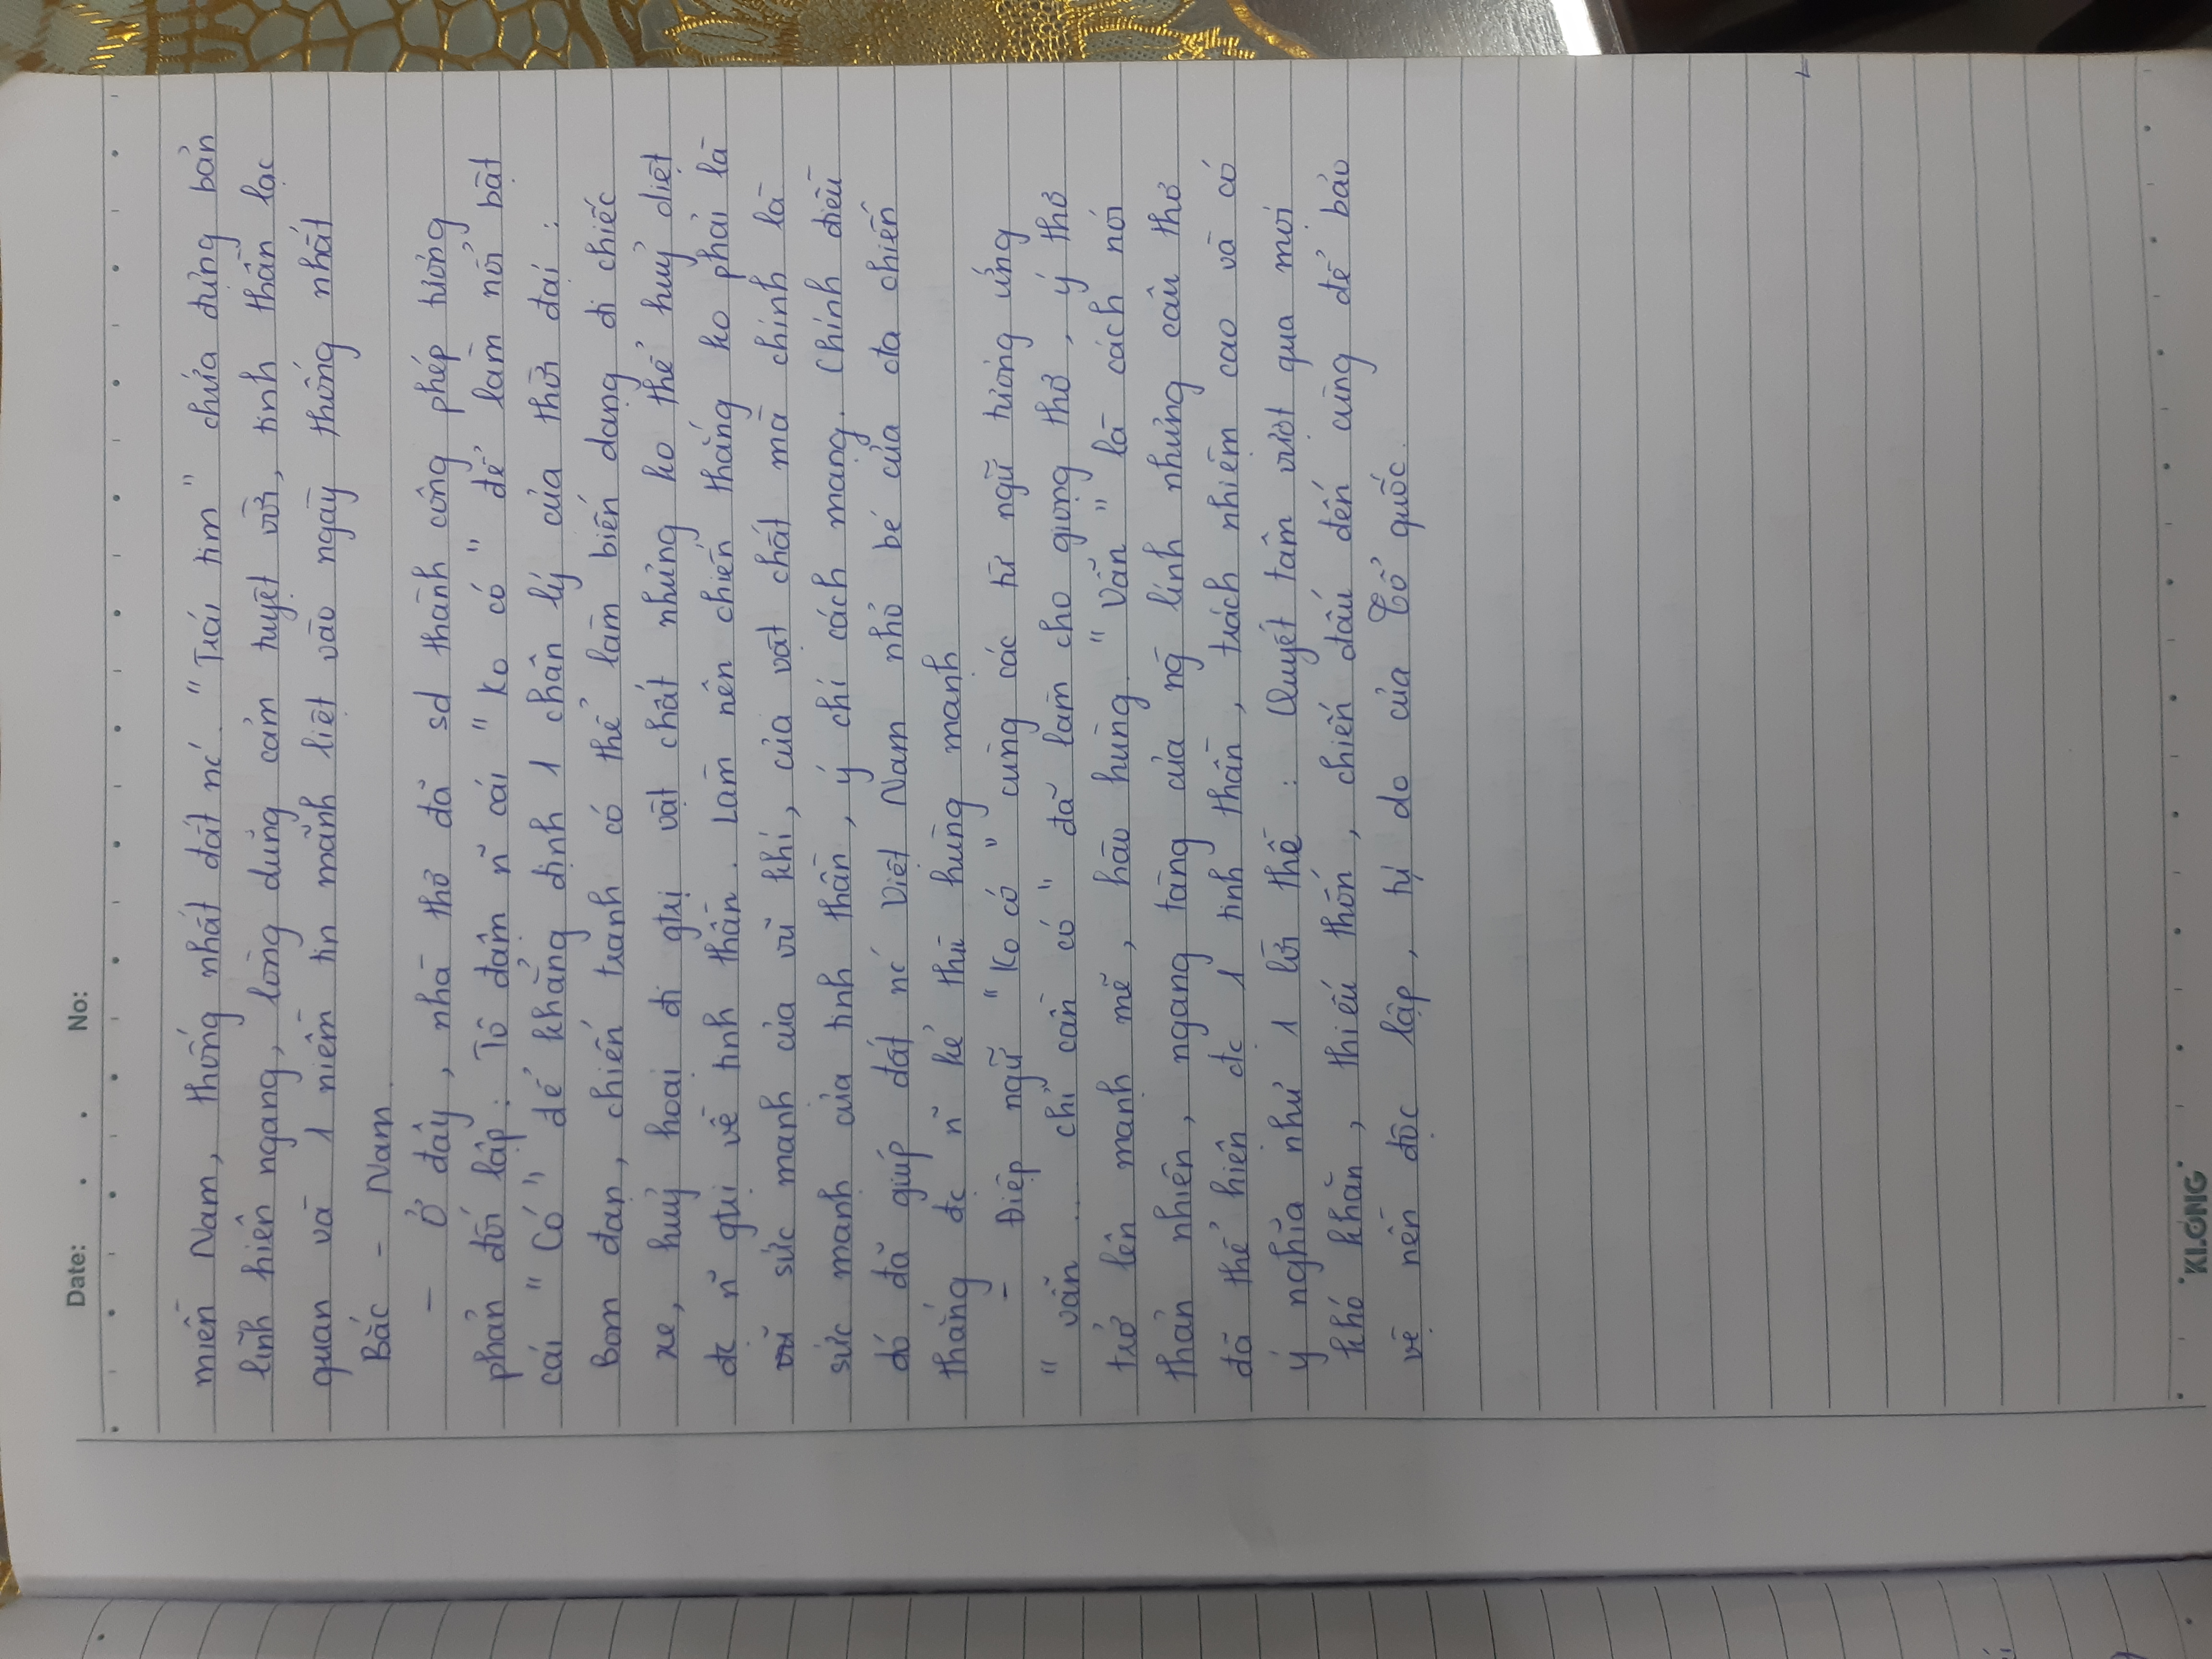 Date: . . No:
miền Nam, thống nhất đất nc'. "Trái tim" chứa đựng bản
lĩnh hiên ngang, lòng dũng cảm tuyệt vời, tinh thần lạc
quan và 1 niềm tin mãnh liệt vào ngày thống nhất
Bắc - Nam.
- Ở đây, nhà thơ đã sd thành công phép tương
phản đối lập: Tô đậm n~ cái "Ko có" để làm nổi bật
cái "Có" để khẳng định 1 chân lý của thời đại:
Bom đạn, chiến tranh có thể làm biến dạng đi chiếc
xe, huỷ hoại đi gtrị vật chất nhưng ko thể huỷ diệt
đc n~ gtrị về tinh thần. Làm nên chiến thắng ko phải là
sức mạnh của vũ khí, của vật chất mà chính là
sức mạnh của tinh thần, ý chí cách mạng. Chính điều
đó đã giúp đất nc' Việt Nam nhỏ bé của cta chiến
thắng đc n~ kẻ thù hùng mạnh
- Điệp ngữ "Ko có" cùng các từ ngữ tương ứng
"vẫn ... chỉ cần có" đã làm cho giọng thơ, ý thơ
trở lên mạnh mẽ, hào hùng. "Vẫn" là cách nói
thản nhiên, ngang tàng của ng` lính nhưng câu thơ
đã thể hiện đc 1 tinh thần, trách nhiệm cao và có
ý nghĩa như 1 lời thề: Quyết tâm vượt qua mọi
khó khăn, thiếu thốn, chiến đấu đến cùng để bảo
vệ nền độc lập, tự do của Tổ quốc.
KLONG